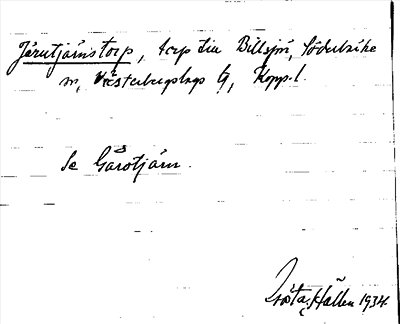 Järutjärnstorp, torp till Billsjö, Söderbärke
sn, Västerbergslags tg, Kopp. l.
Se Gärotjärn.
Gösta Hallen 1934.